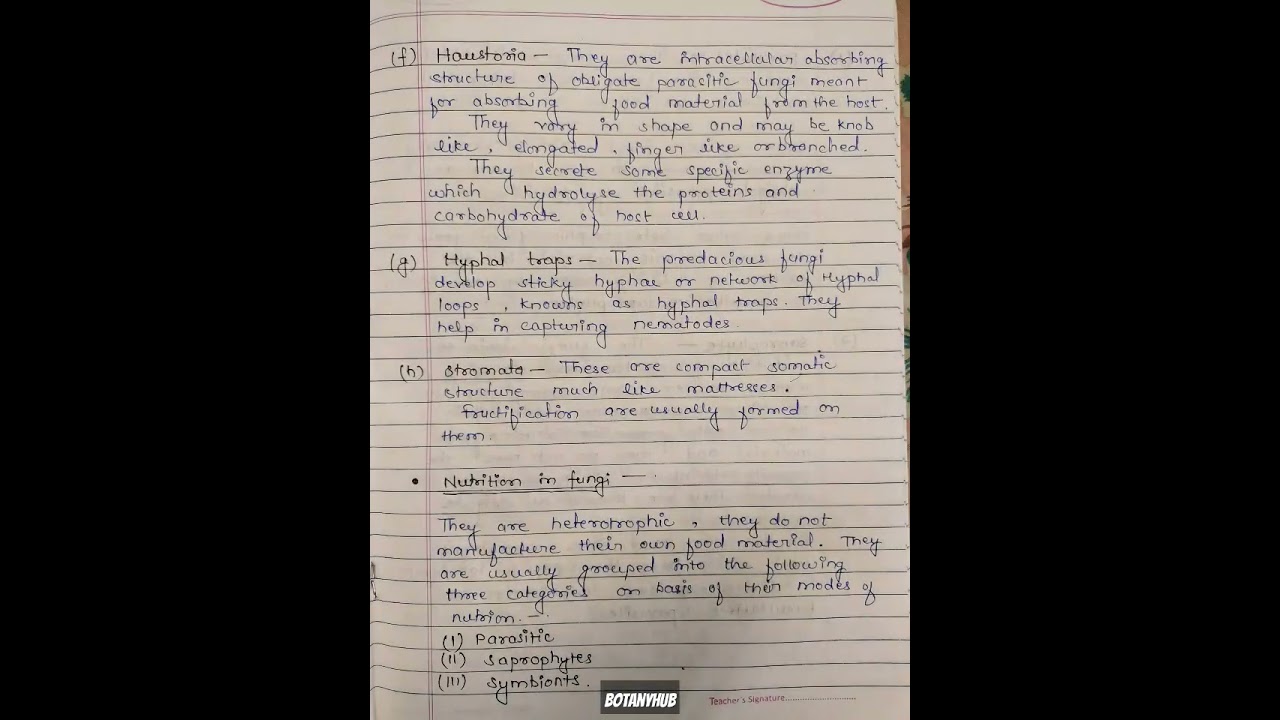 (f) Haustoria — They are intracellular absorbing
structure of obligate parasitic fungi meant
for absorbing food material from the host.
They vary in shape and may be knob
like, elongated, finger like or branched.
They secrete some specific enzyme
which hydrolyse the proteins and
carbohydrate of host cell.
(g) Hyphal traps — The predacious fungi
develop sticky hyphae or network of Hyphal
loops, knowns as hyphal traps. They
help in capturing nematodes.
(h) Stromata — These are compact somatic
structure much like mattresses.
Fructification are usually formed on
them.
• Nutrition in fungi —
They are heterotrophic, they do not
manufacture their own food material. They
are usually grouped into the following
three categories on basis of their modes of
nutrion. —
(I) Parasitic
(II) Saprophytes
(III) Symbionts.
BOTANYHUB
Teacher's Signature..............................